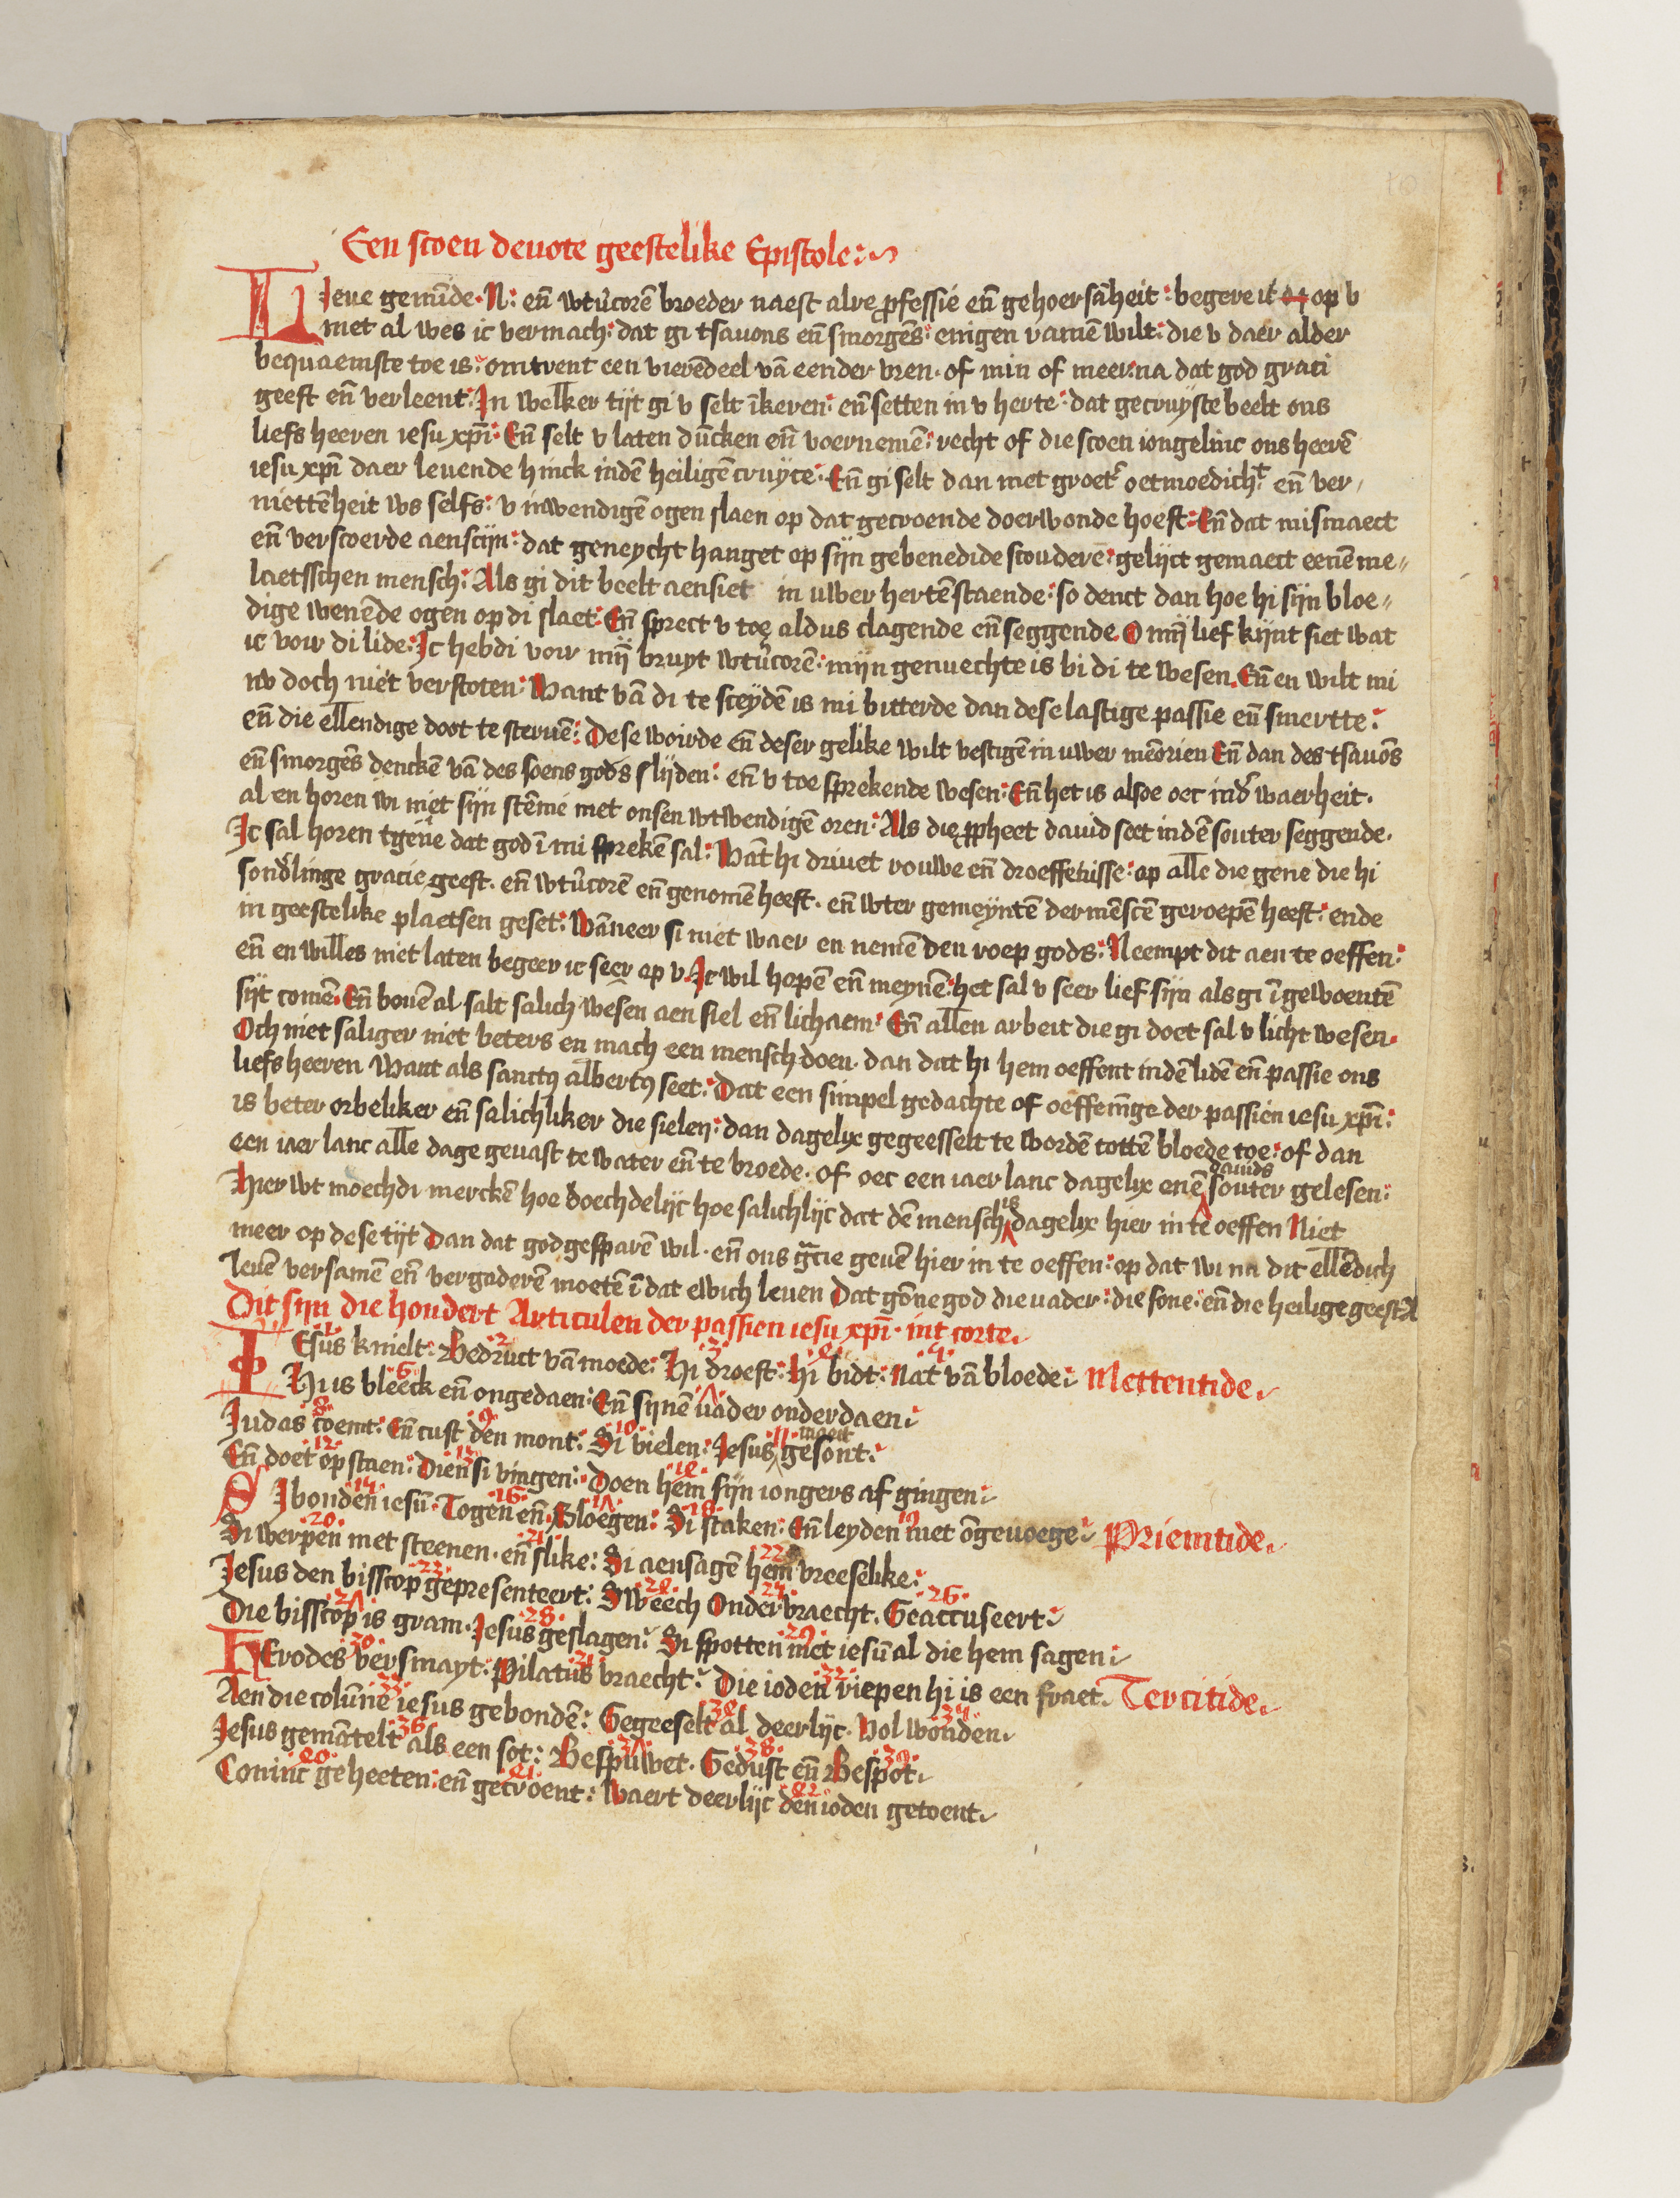 Een scoen deuote geestelike Epistole
LIeue gemīde. N: eñ wtůcorē broeder naest alre ꝓfessie eñ gehoersāheit: begere ic op v
met al wes ic vermach: dat gi tsauons eñ smorgēs: enigen ramē wilt: die v daer alder
bequaemste toe is: omtrent een vierēdeel vā eender vren. of min of meer: na dat god grati
geeft eñ verleent: In welker tijt gi v selt īkeren: eñ setten in v herte: dat gecruyste beelt ons
liefs heeren iesu xpī: Eñ selt v laten dūcken eñ voernemē: recht of die scoen iongelinc ons heerē
iesu xpī daer leuende hinck indē heiligē cruyce: Eñ gi selt dan met groetʳ oetmoedichᵗ eñ ver/
niettēheit ws selfs: v inwendigē ogen slaen op dat gecroende doerwonde hoeft: Eñ dat mismaect
eñ verscoerde aenscijn: dat geneycht hanget op sijn gebenedide scouderē: gelijct gemaect eenē me//
laetsschen mensch: Als gi dit beelt aensiet in uwer hertē staende: so denct dan hoe hi sijn bloe//
dige wenēde ogen op di slaet: Eñ sprect v toe aldus clagende eñ seggende. O mȳ lief kijnt siet wat
ic voir di lide: Ic hebdi voir mȳ bruyt wtůcorē: mijn genuechte is bi di te wesen. Eñ en wilt mi
nv doch niet verstoten: Want vā di te sceydē is mi bitterde dan dese lastige passie eñ smertte:
eñ die ellendige doot te steruē: Dese woirde eñ deser gelike wilt vestigē in uwer mēorien Eñ dan des tsauōs
eñ smorgēs denckē vā des soens gods slijden: eñ v toe sprekende wesen: Eñ het is alsoe oec indʳ waerheit.
al en horen wi niet sijn stēme met onsen wtwendigē oren: Als die ꝓpheet dauid seet indē souter seggende.
Ic sal horen tgene dat god ī mi sprekē sal: Wāt hi driuet rouwe eñ droeffenisse: op alle die gene die hi
sondʳlinge gracie geeft. eñ wtůcorē eñ genomē heeft. eñ wter gemeyntē der mēscē geroepē heeft: ende
in geestelike plaetsen geset: Wāneer si niet waer en nemē den roep gods: Neempt dit aen te oeffen:
eñ en willes niet laten begeer ic seer op v. Ic wil hopē eñ meynē: het sal v seer lief sijn als gi ī gewoentē
sijt comē. Eñ bouē al salt salich wesen aen siel eñ lichaem: Eñ allen arbeit die gi doet sal v licht wesen.
Och niet saliger niet beters en mach een mensch doen. dan dat hi hem oeffent indē lidē eñ passie ons
liefs heeren Want als sanctꝰ albertꝰ seet: Dat een simpel gedachte of oeffenīge der passien iesu xpī:
is beter orbeliker eñ salichliker die sielen: dan dagelix gegeesselt te wordē tottē bloede toe: of dan
een iaer lanc alle dage geuast te water eñ te broede. of oec een iaer lanc dagelix enē dauids souter gelesen:
Hier wt moechdi merckē hoe doechdelijc hoe salichlijc dat dē mensch is dagelix hier in te oeffen Niet
meer op dese tijt Dan dat god gesparē wil. eñ ons gᵃcie geuē hier in te oeffen: op dat wi na dit ellēdich
leuē versamē eñ vergaderē moetē ī dat ewich leuen Dat gōne god die vader: die sone: eñ die heilige geest A
Dit sijn die hondert Articulen der passien iesu xpī. int corte.
IEsus knielt: 2 Bedruct vā moede: 3 Hi droeft: 4 hi bidt: 5 Nat vā bloede: Mettentide.
6 Hi is bleeck eñ ongedaen: 7 Eñ sijnē vader onderdaen
8 Judas coemt: 9 Eñ cust den mont: 10 Si vielen: 11 Jesus maect gesont:
12 Eñ doet op staen: 13 Dien si vingen: 14 Doen hem sijn iongers af gingen
15 SI bonden iesū. 16 Togen eñ. 17 Sloegen: 18 Si staken: 19 Eñ leyden met ōgeuoege Priemtide.
20 Si werpen met steenen. 21 eñ slike: 22 Si aensagē hem vreeselike:
23 Jesus den bisscop gepresenteert: 24 Sweech 25 Onder braecht. 26 Geaccuseert
27 Die bisscop is gram. 28 Jesus geslagen: 29 Si spotten met iesū al die hem sagen
30 HErodes versmayt: 31 Pilatus braecht: 32 Die ioden riepen hi is een fraet. Tercitide.
33 Aen die colūne iesus gebondē: 34 Gegeeselt al deerlijc. 35 Vol wonden
36 Jesus gemātelt als een sot: 37 Bespuwet. 38 Gedust eñ 39 Bespot
40 Coninc geheeten: 41 eñ gecroent: 42 Waert deerlijc den ioden getoent